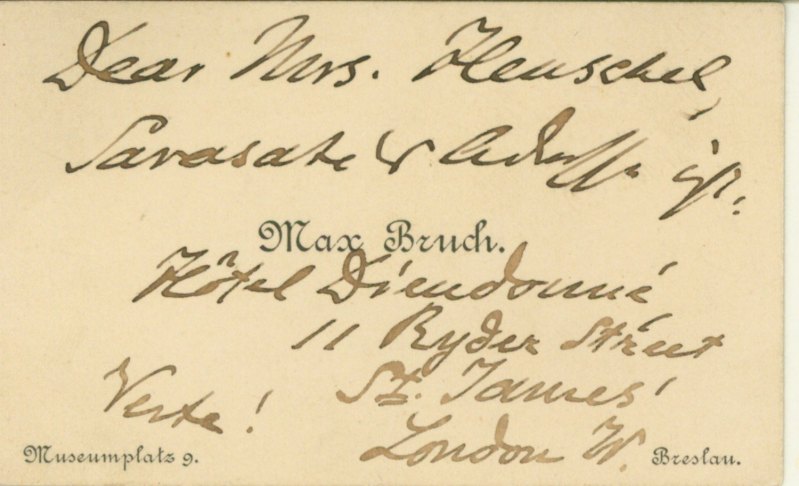 Dear Mrs. Henschel,
Sarasate &
Max Bruch.
Hôtel Dieudonné,
11 Ryder Street
Verte!
St. James'
London W.
Museumplatz 9.
Breslau.